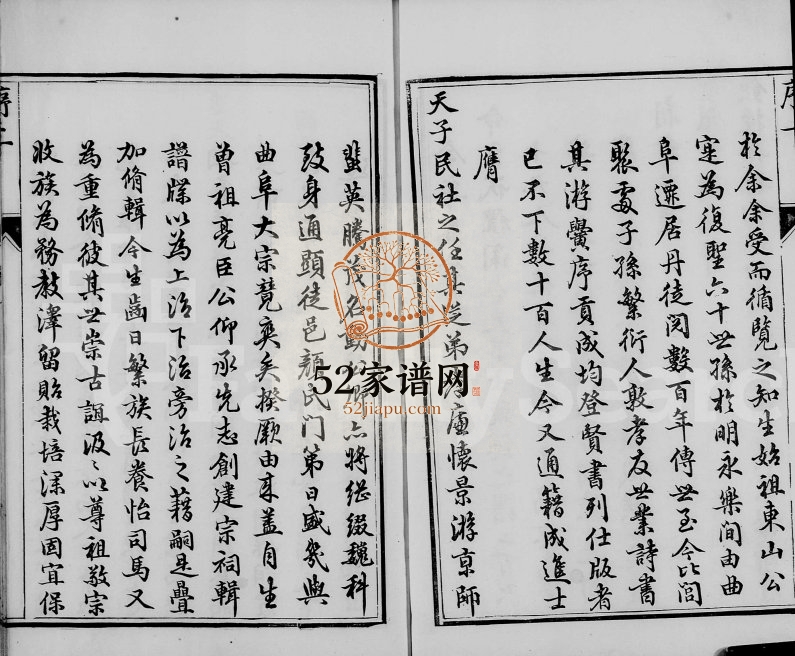 序一
於余余受而循覽之知生始祖東山公
寔為復聖六十世孫於明永樂間由曲
阜遷居丹徒閱數百年傳世至今比閭
聚處子孫繁衍人敦孝友世業詩書
其游黌序貢成均登賢書列仕版者
已不下數十百人生今又通籍成進士
膺
天子民社之任其從弟 懷景游京師
蜚英騰茂名動公卿亦將繼綴巍科
致身通顯徒邑顏氏門第日盛幾與
曲阜大宗競爽矣揆厥由來蓋自生
曾祖亮臣公仰承先志創建宗祠輯
譜牒以為上治下治旁治之藉嗣是疊
加脩輯今生齒日繁族長養怡司馬又
為重脩彼其世崇古誼汲〻以尊祖敬宗
收族為務教澤留貽栽培深厚固宜保
序二
52家谱网
52jiapu.com